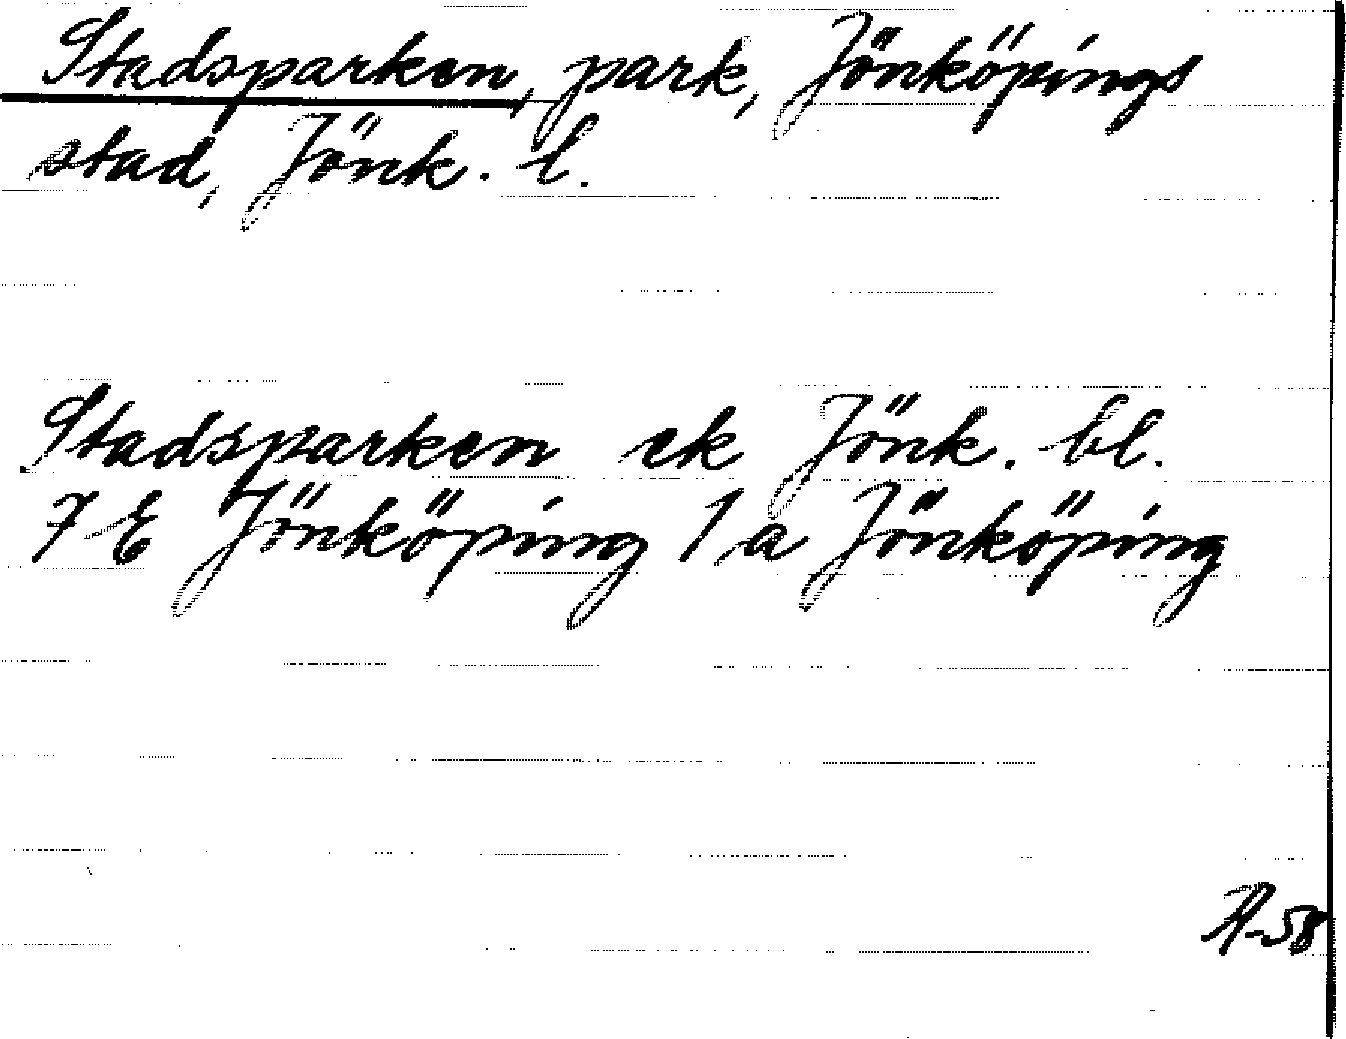 Stadsparken, park, Jönköpings
stad, Jönk. l.
Stadsparken ek Jönk. bl.
7 E Jönköping 1 a Jönköping
A-58